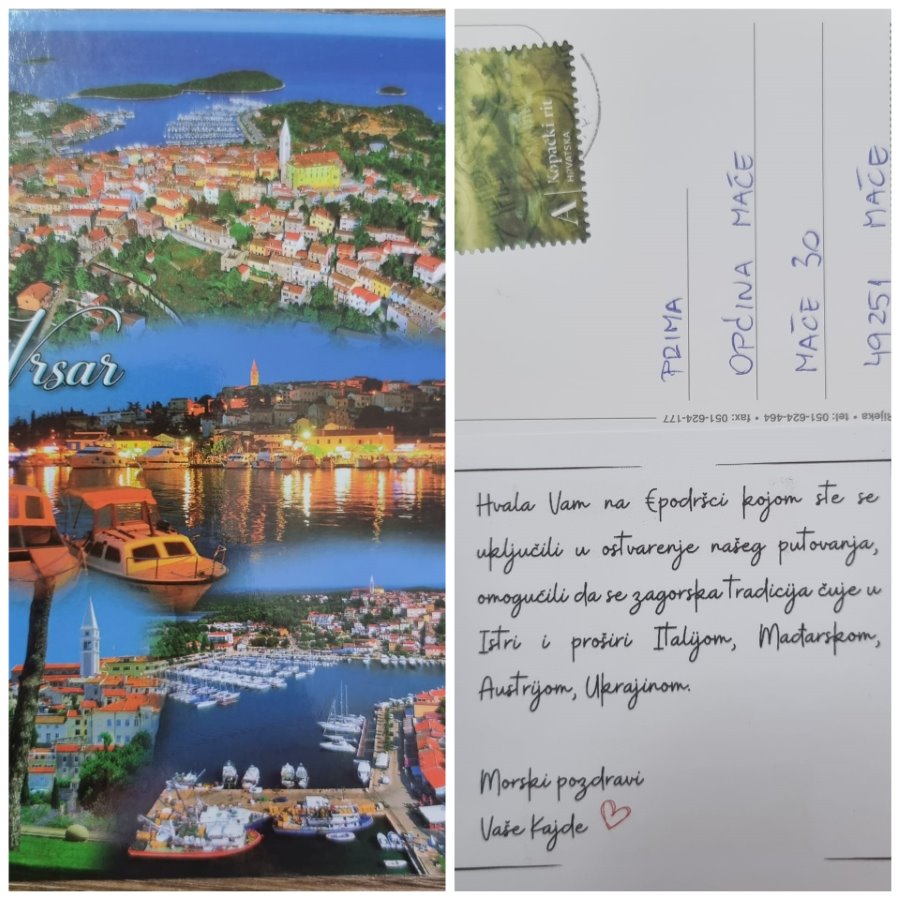 Vrsar
A
Kopački rit
HRVATSKA
PRIMA
OPĆINA MAČE
MAČE 30
49251 MAČE
Rijeka • tel: 051-624-464 • fax: 051-624-177
Hvala Vam na €podršci kojom ste se
uključili u ostvarenje našeg putovanja,
omogućili da se zagorska tradicija čuje u
Istri i proširi Italijom, Mađarskom,
Austrijom, Ukrajinom.
Morski pozdravi
Vaše Kajde